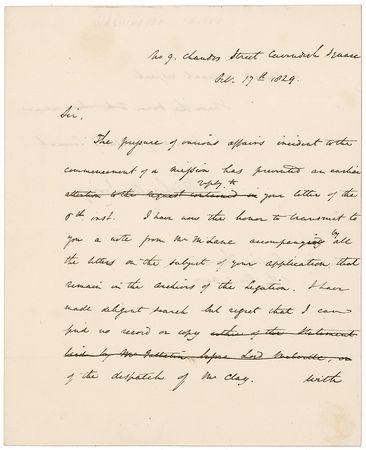 No 9. Chandos Street Cavendish Square
Oct. 17th 1829.
Sir,
The pressure of various affairs incident to the
commencement of a mission has prevented an earlier
reply to
attention to the request contained in your letter of the
8th inst. I have now the honor to transmit to
you a note from Mr McLane accompanying by all
the letters on the subject of your application that
remain in the archives of the Legation. I have
made diligent search but regret that I can
find no record or copy either of the Statement
laid by Mr Gallatin before Lord Melville, or
of the dispatch of Mr Clay. With